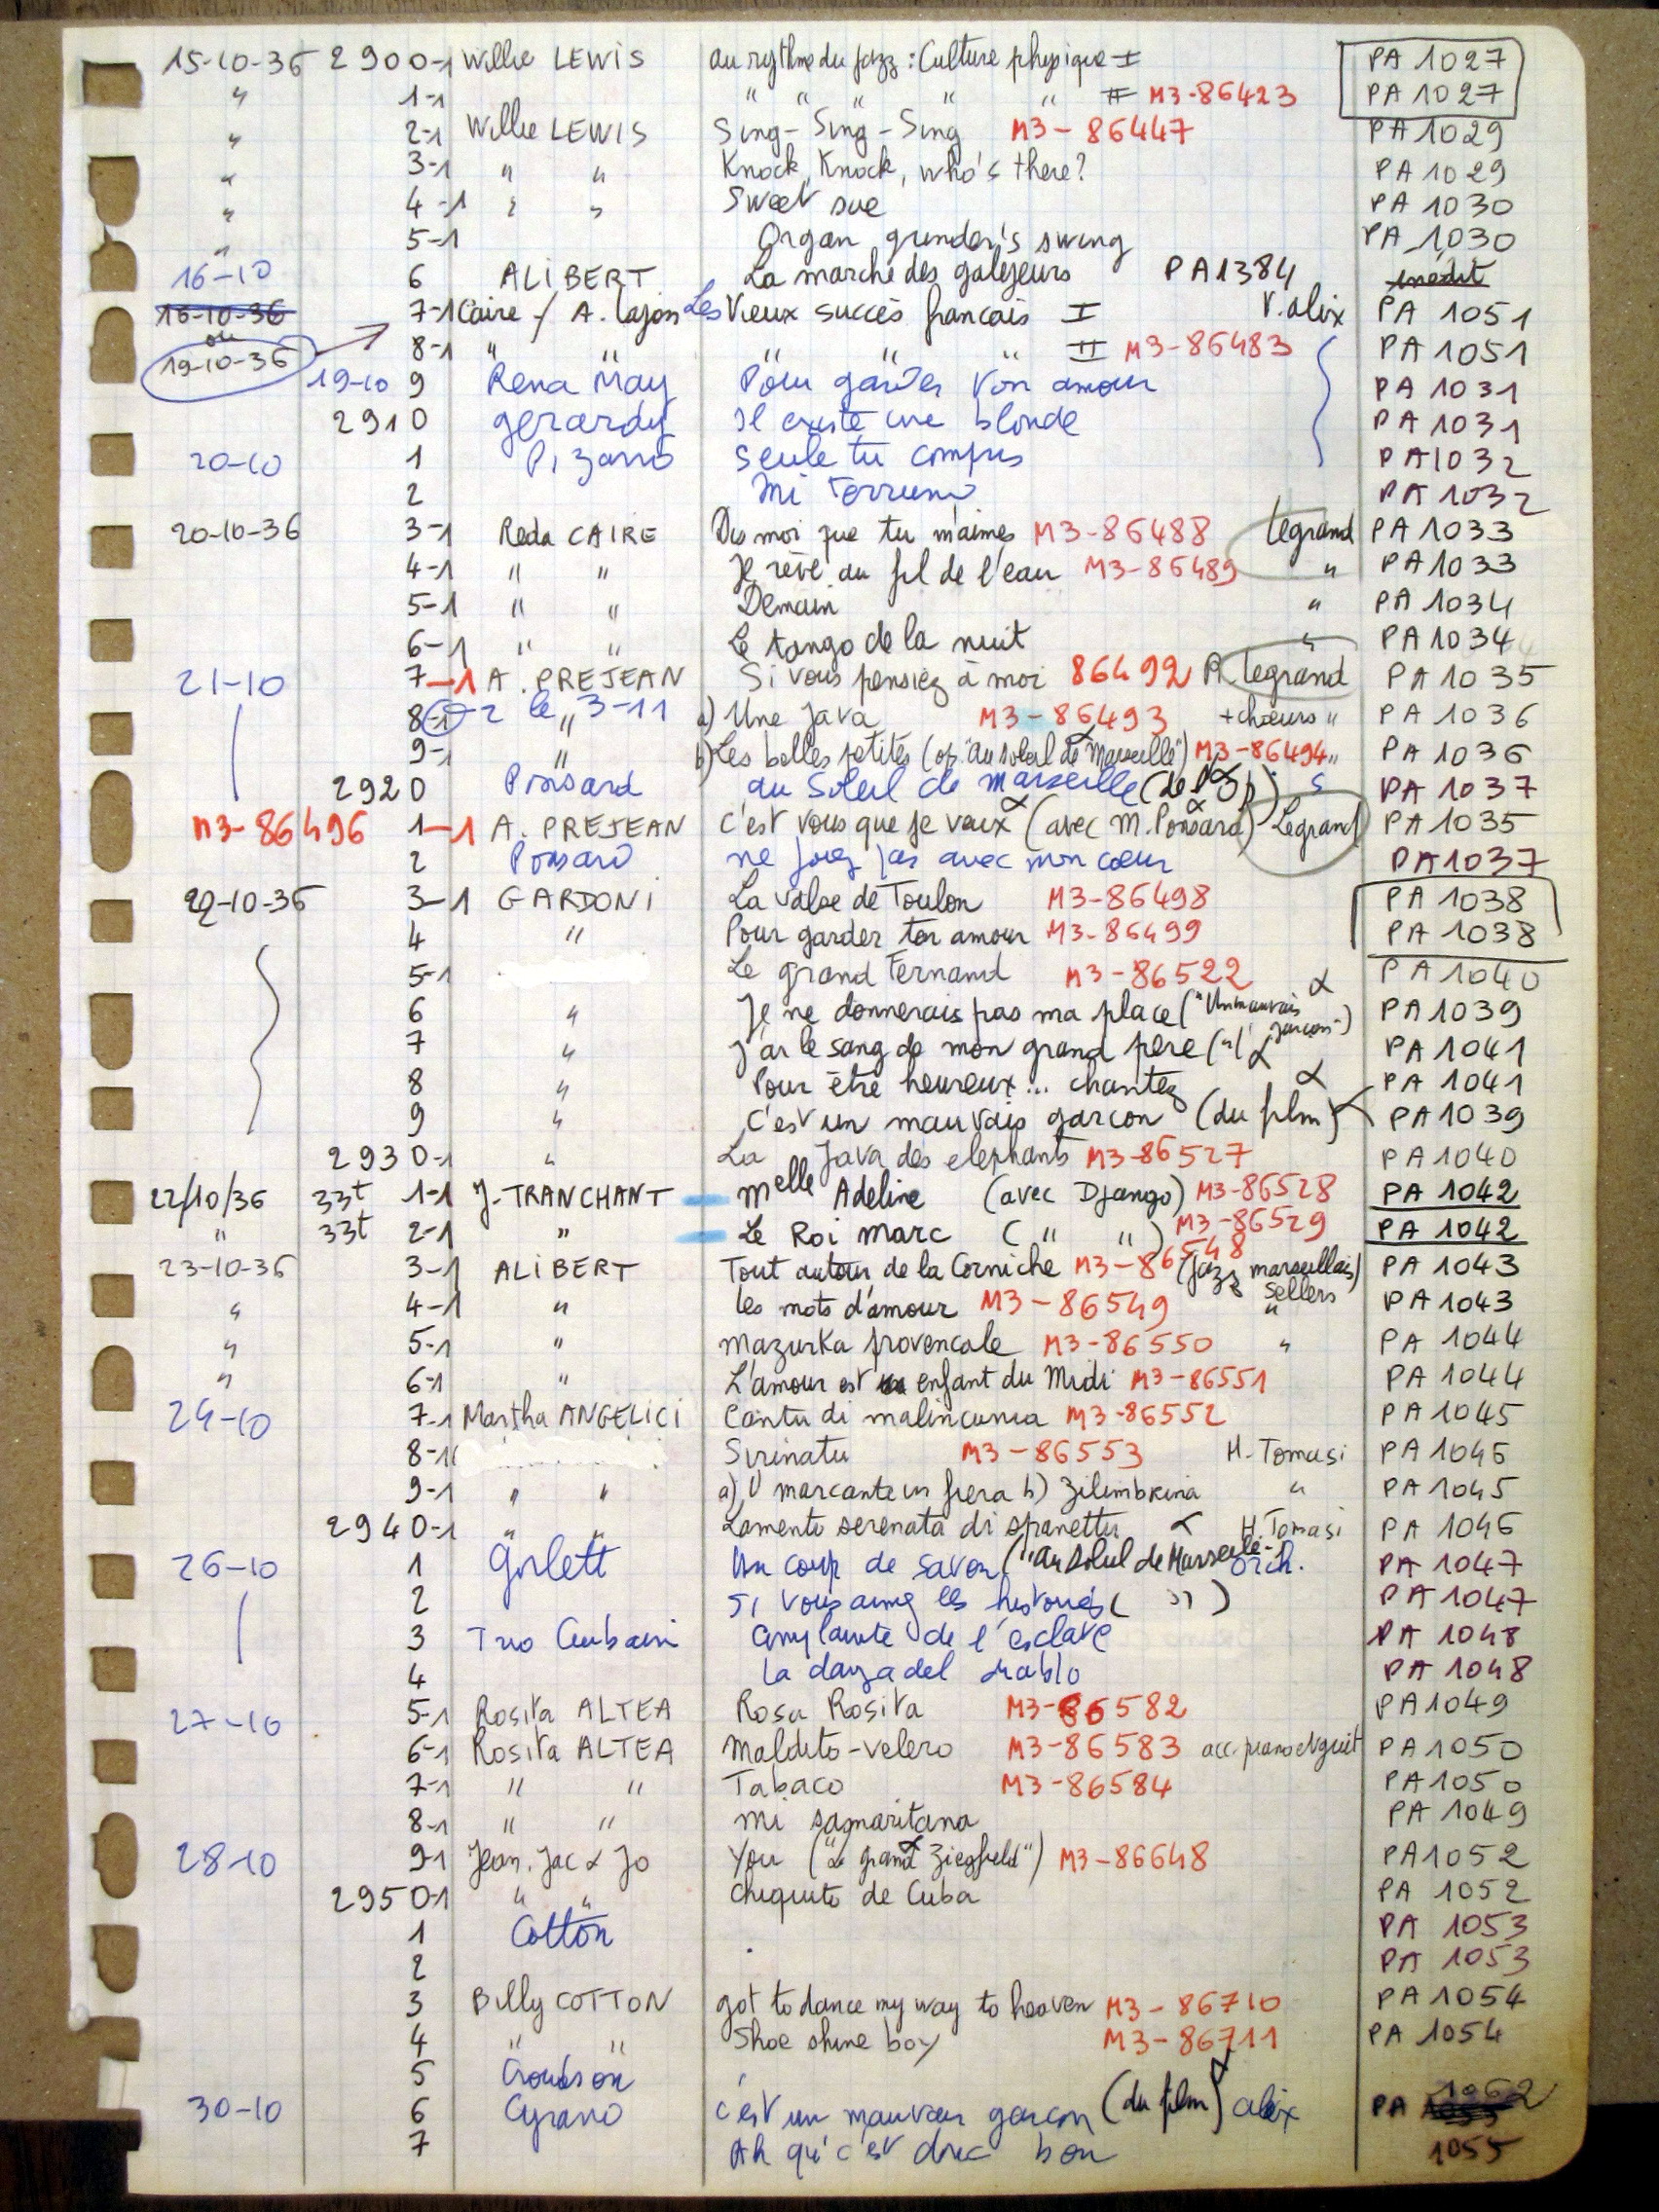 15-10-36 2900-1 Willie LEWIS au rythme du jazz : Culture physique I PA 1027
" 1-1 " " " " " II M3-86423 PA 1027
" 2-1 Willie LEWIS Sing-Sing-Sing M3-86447 PA 1029
" 3-1 " " Knock, Knock, who's there? PA 1029
" 4-1 " " Sweet sue PA 1030
" 5-1 Organ grinder's swing PA 1030
16-10 6 ALIBERT La marche des galejeurs PA1384 inédit
16-10-36 7-1 Caire / A. Lajon Les Vieux succès francais I V. alix PA 1051
ou
19-10-36 8-1 " " " " " II M3-86483 PA 1051
19-10 9 Rena May Pour garder ton amour PA 1031
2910 gerardy Il existe une blonde PA 1031
20-10 1 Pizarro Seule tu compris PA1032
2 Mi PA 1032
20-10-36 3-1 Reda CAIRE Dis moi que tu m'aimes M3-86488 Legrand PA 1033
4-1 " " Je rêve au fil de l'eau M3-86489 " PA 1033
5-1 " " Demain " PA 1034
6-1 " " Le tango de la nuit " PA 1034
21-10 7-1 A. PREJEAN Si vous pensiez à moi 86492 R. Legrand PA 1035
8-1 -2 le 3-11 " a) Une Java M3-86493 + chœurs " PA 1036
9-1 " b) Les belles petites (op. "au soleil de Marseille") M3-86494 " PA 1036
2920 Ponsard au Soleil de marseille (de l'Op) s PA 1037
M3-86496 1-1 A. PREJEAN c'est vous que je veux (avec M. Ponsard) Legrand PA 1035
2 Ponsard ne jouez pas avec mon cœur PA1037
22-10-36 3-1 GARDONI La valse de Toulon M3-86498 PA 1038
4 " Pour garder ton amour M3-86499 PA 1038
5-1 Le grand Fernand M3-86522 PA 1040
6 " Je ne donnerais pas ma place ("Un mauvais garçon") α PA 1039
7 " J'ai le sang de mon grand père ("") α PA 1041
8 " Pour être heureux... chantez α PA 1041
9 " c'est un mauvais garcon (du film) α PA 1039
2930-1 " La Java des elephants M3-86527 PA 1040
22/10/36 33t 1-1 J. TRANCHANT Melle Adeline (avec Django) M3-86528 PA 1042
" 33t 2-1 " Le Roi Marc ( " " ) M3-86529 PA 1042
23-10-36 3-1 ALIBERT Tout autour de la Corniche M3-86548 (jazz marseillais) PA 1043
" 4-1 " les mots d'amour M3-86549 Sellers " PA 1043
" 5-1 " mazurka provencale M3-86550 " PA 1044
" 6-1 " L'amour est un enfant du Midi M3-86551 PA 1044
24-10 7-1 Martha ANGELICI Cantu di malincunia M3-86552 PA 1045
8-1 Sirinatu M3-86553 H. Tomasi PA 1046
9-1 " " a) U marcante in fiera b) Zilimbrina " PA 1045
2940-1 " " Lamentu serenata di spanettu α H. Tomasi PA 1046
26-10 1 Gorlett Un coup de savon ("au soleil de Marseille") orch. PA 1047
2 si vous aimez les histoires ( ") ) PA 1047
3 Trio Cubain de l'esclave PA 1048
4 la danza del diablo PA 1048
27-10 5-1 Rosita ALTEA Rosa Rosita M3-86582 PA1049
6-1 Rosita ALTEA Maldito-velero M3-86583 acc. piano et guit PA 1050
7-1 " " Tabaco M3-86584 PA 1050
8-1 " " mi samaritana PA 1049
28-10 9-1 Jean. Jac & Jo You ("Le grand Ziegfeld") α M3-86648 PA1052
2950-1 " " chiquito de Cuba PA 1052
1 Cotton PA 1053
2 PA 1053
3 Billy COTTON got to dance my way to heaven M3-86710 PA 1054
4 " " Shoe shine boy M3-86711 PA 1054
5
30-10 6 Cyrano c'est un mauvais garcon (du film) α alix PA 1062
7 Ah qu'c'est donc bon 1055